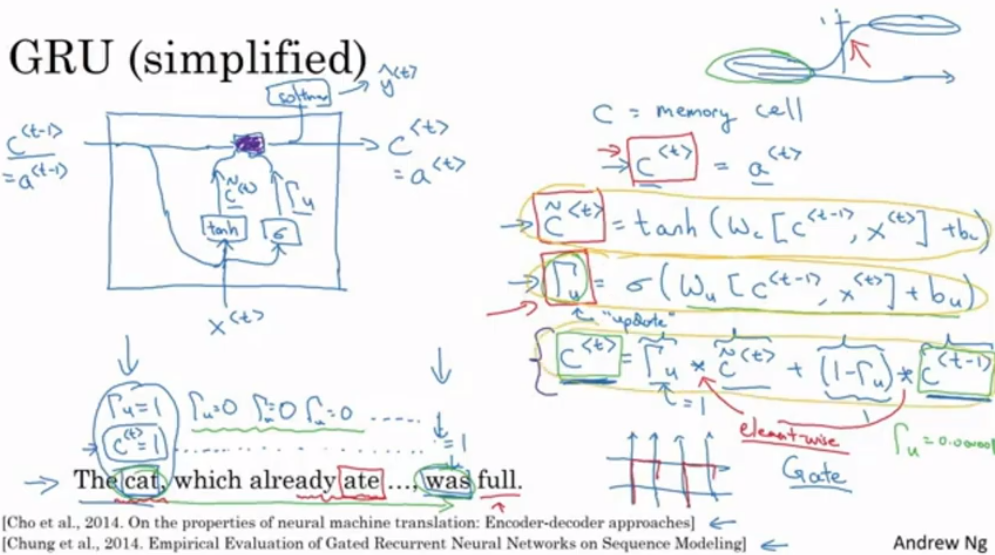 GRU (simplified)
softmax
ŷ<t>
c<t-1>
= a<t-1>
c̃<t>
Γu
tanh
σ
c<t>
= a<t>
x<t>
C = memory cell
c<t> = a<t>
c̃<t> = tanh (Wc [c<t-1>, x<t>] + bc)
Γu = σ (Wu [c<t-1>, x<t>] + bu)
"update"
c<t> = Γu * c̃<t> + (1-Γu) * c<t-1>
= 1
element-wise
Gate
Γu = 0.000001
Γu=1 Γu=0 Γu=0 Γu=0 ......
c<t>=1 ............ = 1
The cat, which already ate ..., was full.
[Cho et al., 2014. On the properties of neural machine translation: Encoder-decoder approaches]
[Chung et al., 2014. Empirical Evaluation of Gated Recurrent Neural Networks on Sequence Modeling]
Andrew Ng